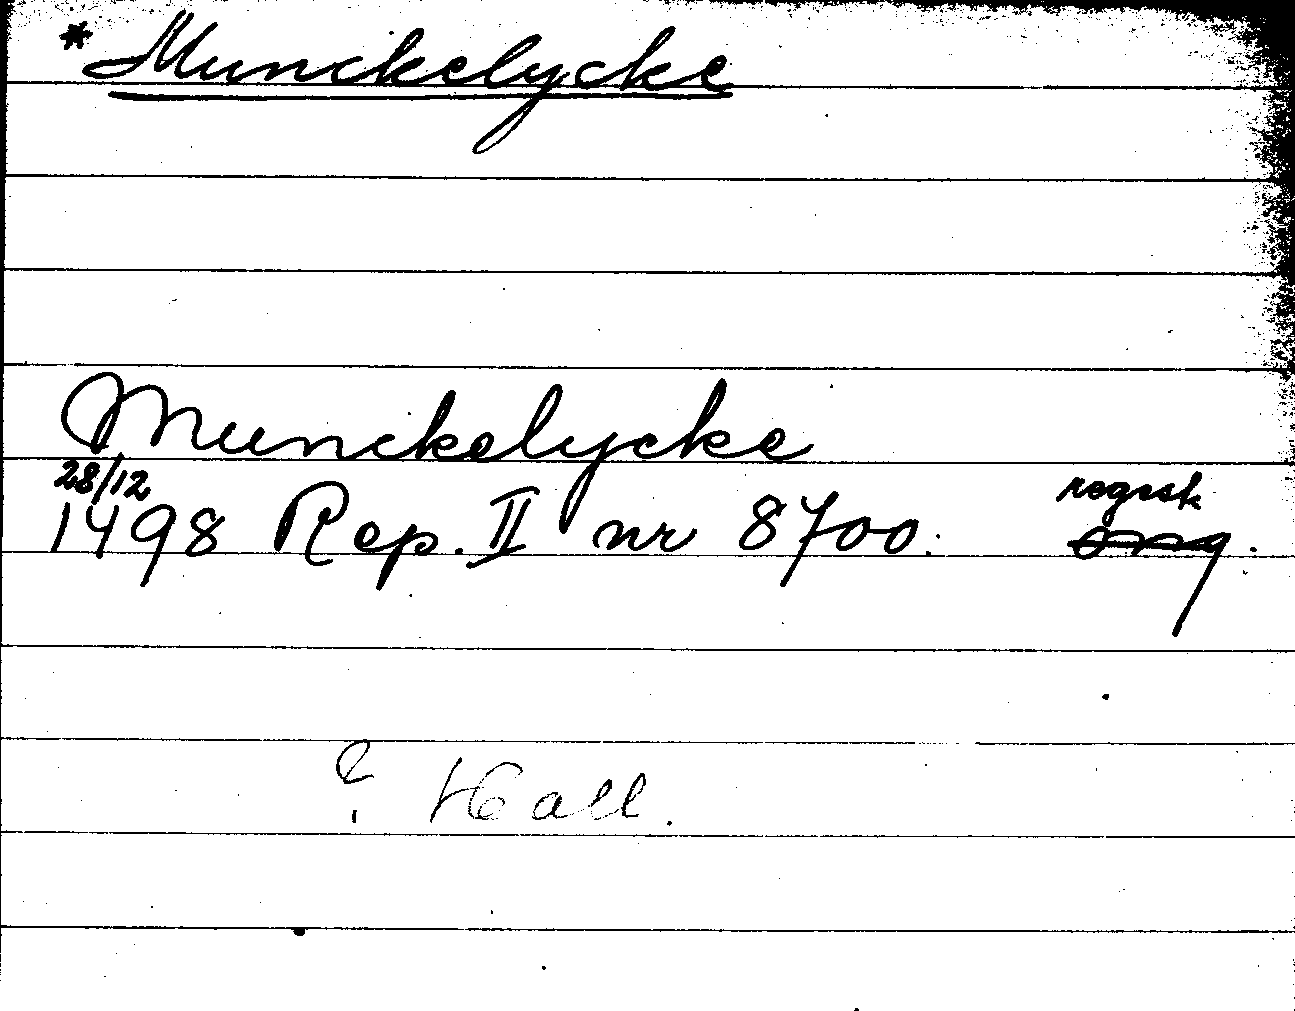 * Munckelycke
Munckelycke
28/12
1498 Rep. II nr 8700. regest
? Hall.